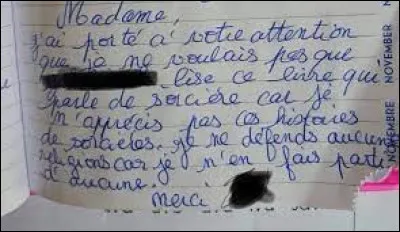 Madame,
j'ai porté à votre attention
que je ne voulais pas que
lise ce livre qui
parle de sorcière car je
n'apprécis pas ces histoires
de sorcières. je ne défends aucun
religions car je n'en fais parti
d'aucune.
Merci
NOVEMBER
NOVEMBRE